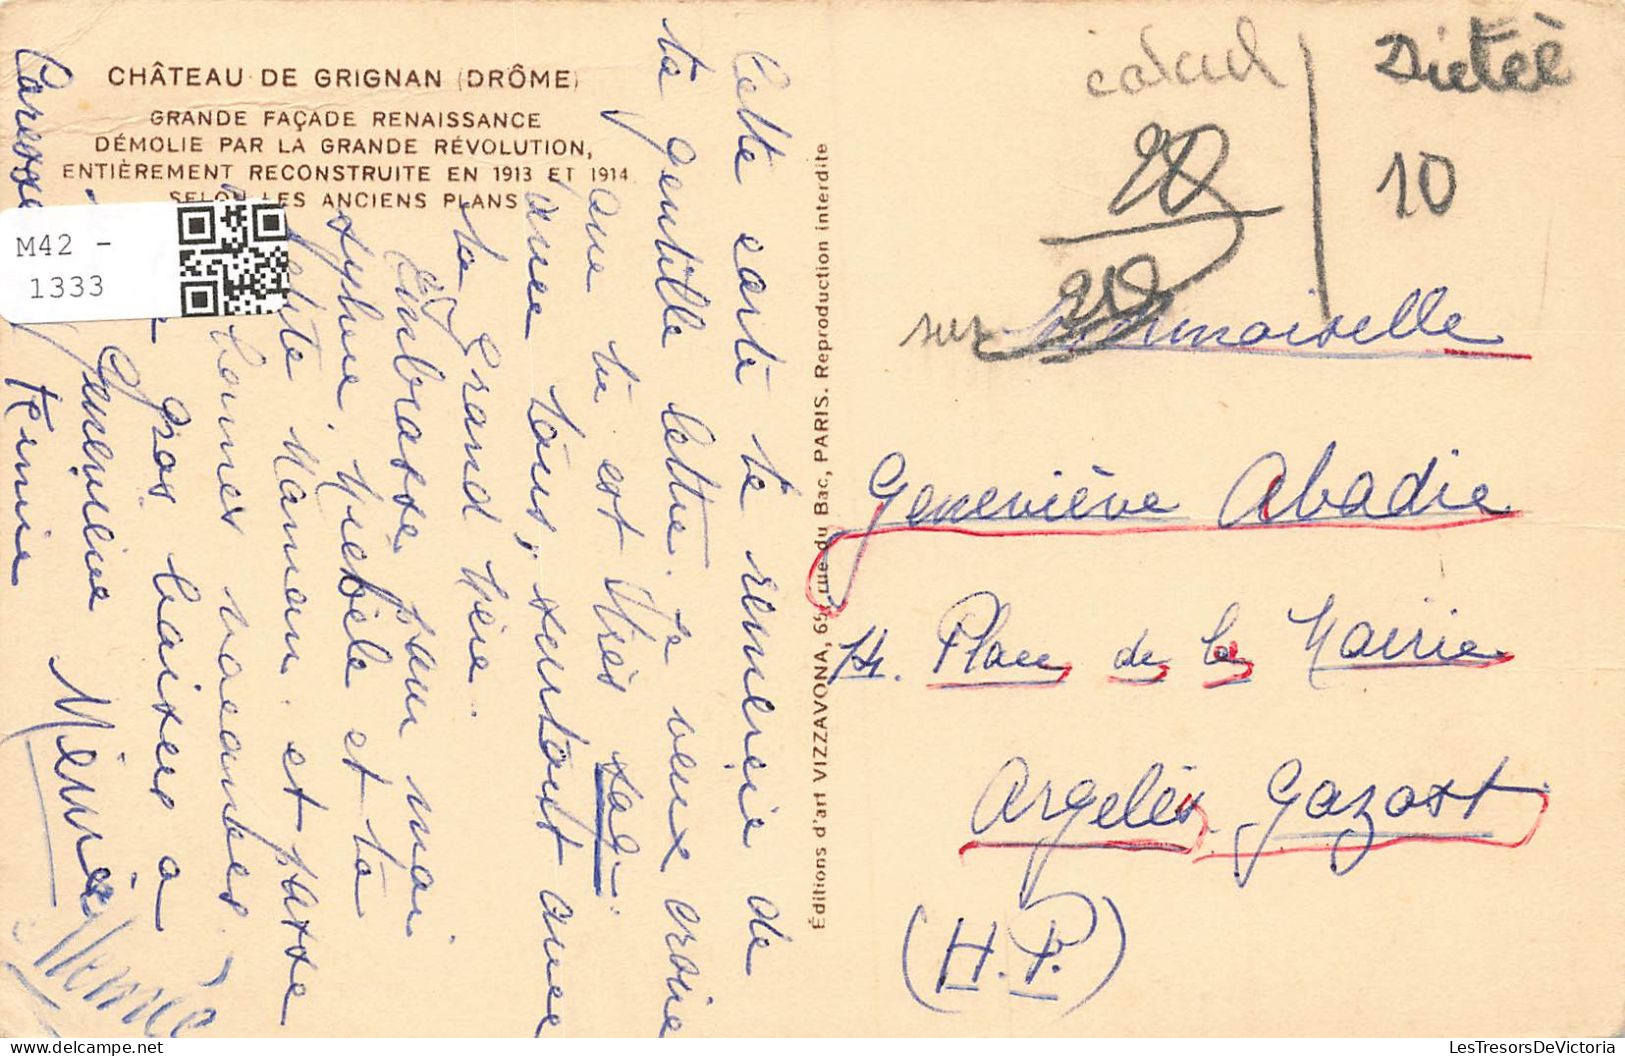 CHÂTEAU DE GRIGNAN (DRÔME)
GRANDE FAÇADE RENAISSANCE
DÉMOLIE PAR LA GRANDE RÉVOLUTION,
ENTIÈREMENT RECONSTRUITE EN 1913 ET 1914
SELON LES ANCIENS PLANS
M42 -
1333
Cette carte te remerie de
ta gentille lettre. Je veux croire
que tu est très sage
avec tous, surtout avec
ta Grand Mère.
Embrasse pour moi
et ta
Maman. et passe
bonnes vacances.
gros baisers a
Geneviève
Mémé
Caresse
Éditions d'art VIZZAVONA, 65, rue du Bac, PARIS. Reproduction interdite
calcul
20
sur 20
Dictée
10
Geneviève Abadie
14. Place de la Mairie
Argelès Gazost
(H.P.)
LesTresorsDeVictoria.com